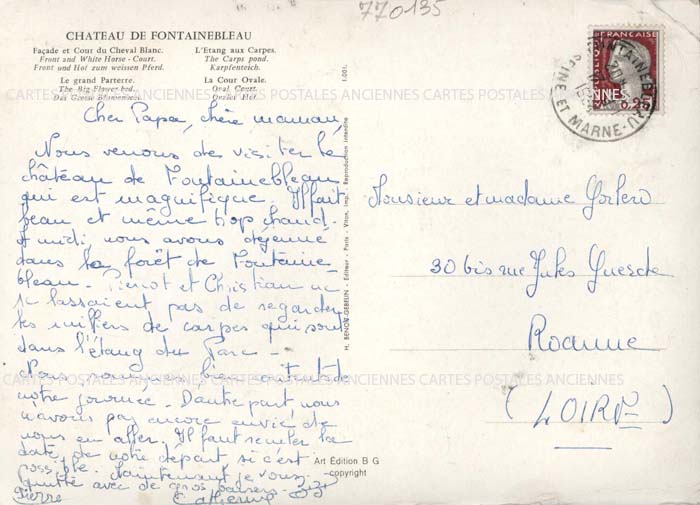 770135
CHATEAU DE FONTAINEBLEAU
Façade et Cour du Cheval Blanc.
Front and White Horse - Court.
Front und Hof zum weissen Pferd.
L'Etang aux Carpes.
The Carps pond.
Karpfenteich.
Le grand Parterre.
The Big Flower-bed.
Das Grosse Blumenbeet.
La Cour Ovale.
Oval Court.
Ovaler Hof.
CARTES POSTALES ANCIENNES CARTES POSTALES ANCIENNES
Cher Papa, chère maman,
Nous venons de visiter le
château de Fontainebleau
qui est magnifique. Il fait
beau et même trop chaud.
A midi nous avons déjeuné
dans la forêt de Fontaine-
bleau. Pierrot et Christian ne
se lassaient pas de regarder
les milliers de carpes qui sont
dans l'étang du Parc -
Nous sommes bien contents de
notre journée. D'autre part, nous
n'avons pas encore envie de
nous en aller. Il faut reculer la
date de notre départ si c'est
possible. Maintenant je vous
quitte avec de gros baisers
Pierre Catherine
1.001.
H. BENOIT-GEBELIN - Editeur - Paris - Viton, Imp. - Reproduction interdite
Art Édition B G
copyright
FRANÇAISE
FONTAINEBLEAU
SEINE ET MARNE
Monsieur et madame
30 bis rue Jules Guesde
Roanne
(LOIRE)
CARTES POSTALES ANCIENNES CARTES POSTALES ANCIENNES